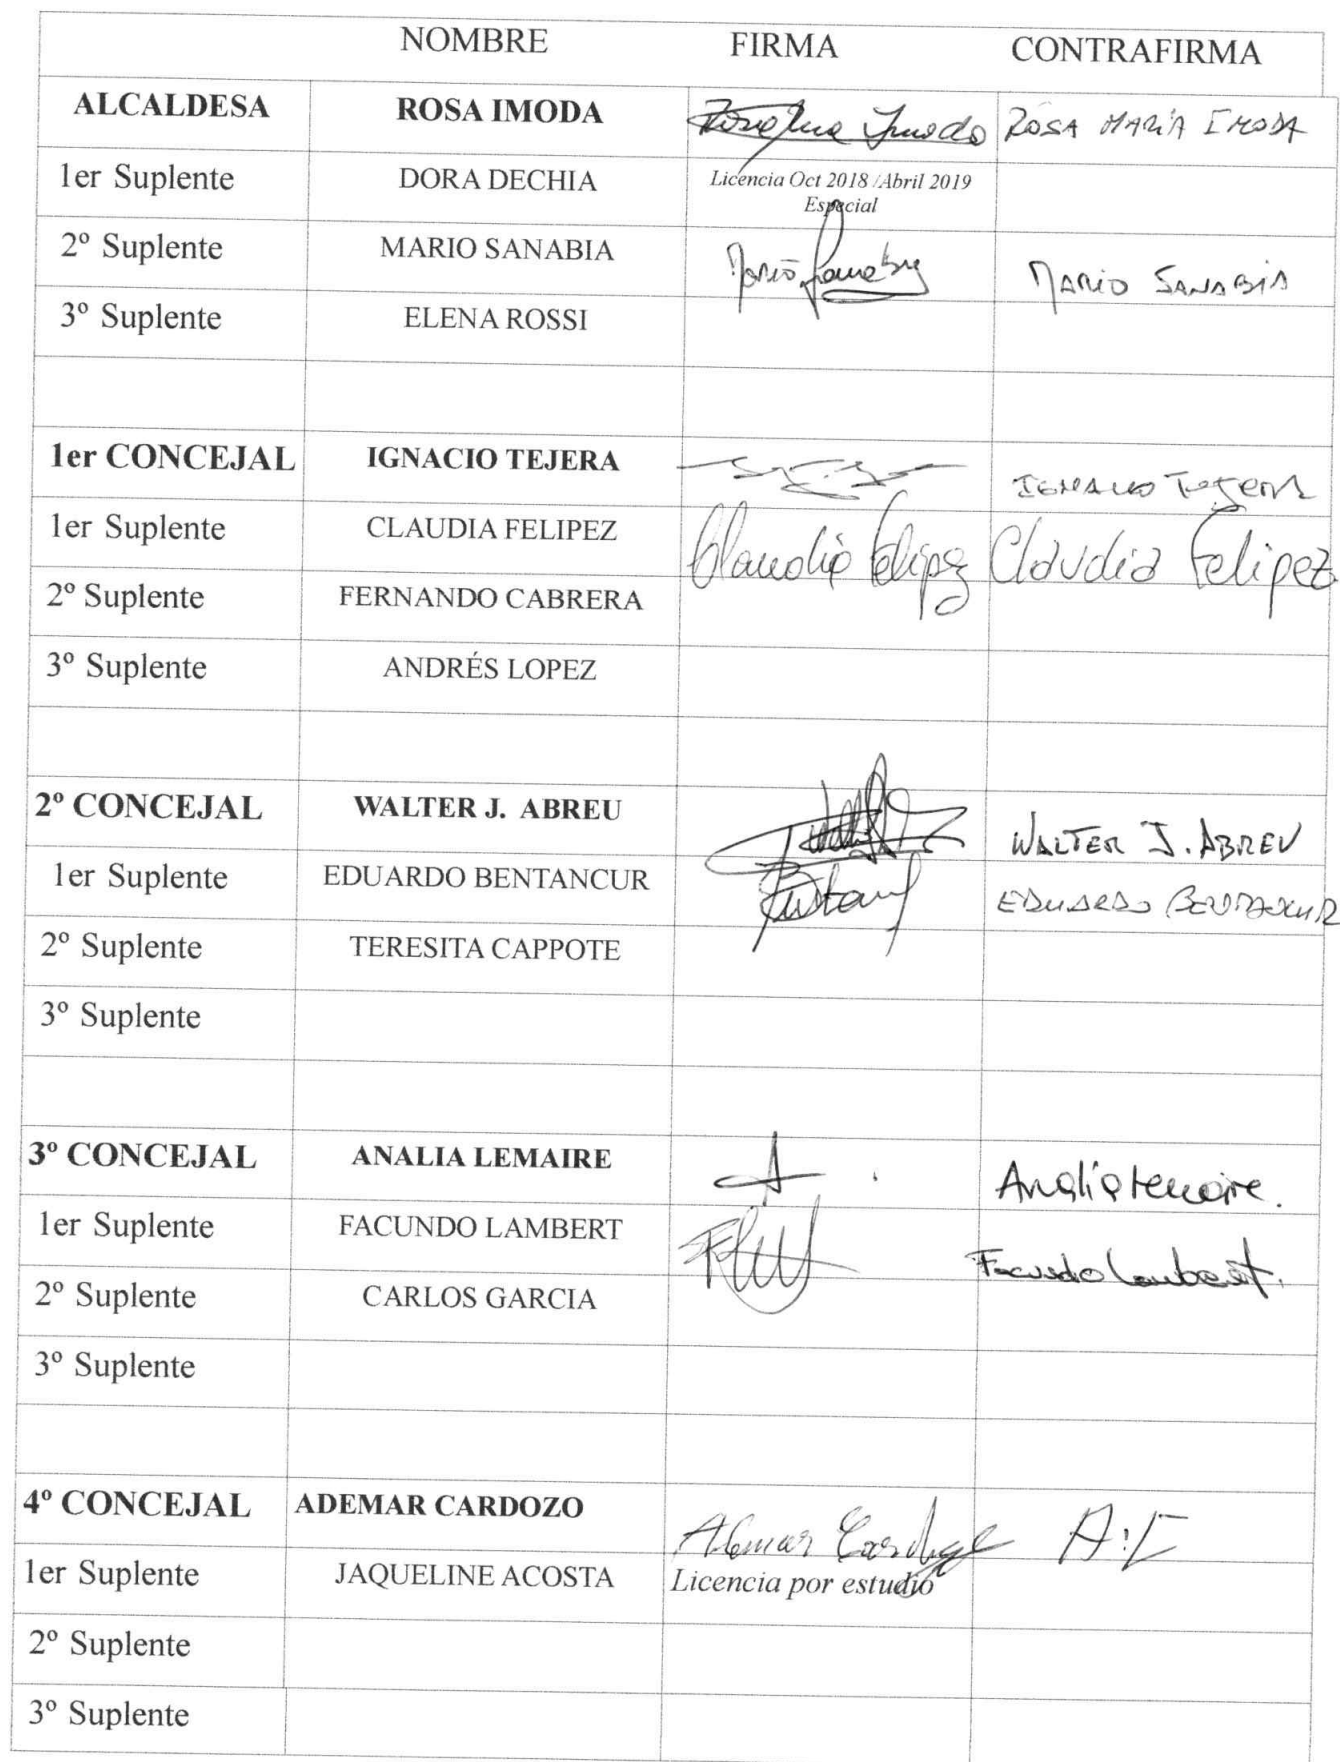 NOMBRE FIRMA CONTRAFIRMA
ALCALDESA ROSA IMODA ROSA MARÍA IMODA
1er Suplente DORA DECHIA Licencia Oct 2018 /Abril 2019
Especial
2º Suplente MARIO SANABIA Mario Sanabia MARIO SANABIA
3º Suplente ELENA ROSSI
1er CONCEJAL IGNACIO TEJERA IGNACIO Tejera
1er Suplente CLAUDIA FELIPEZ Claudia Felipez Claudia Felipez
2º Suplente FERNANDO CABRERA
3º Suplente ANDRÉS LOPEZ
2º CONCEJAL WALTER J. ABREU WALTER J. ABREU
1er Suplente EDUARDO BENTANCUR EDUARDO BENTANCUR
2º Suplente TERESITA CAPPOTE
3º Suplente
3º CONCEJAL ANALIA LEMAIRE A Analia Lemaire.
1er Suplente FACUNDO LAMBERT Facundo Lambert.
2º Suplente CARLOS GARCIA
3º Suplente
4º CONCEJAL ADEMAR CARDOZO Ademar Cardozo A:C
1er Suplente JAQUELINE ACOSTA Licencia por estudio
2º Suplente
3º Suplente